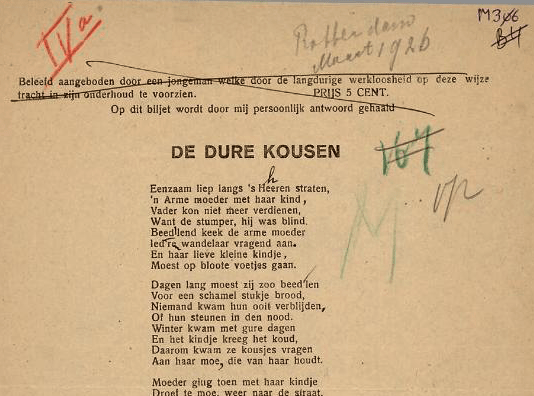 IVa.
Rotterdam
Maart 1926
M306
B4
Beleefd aangeboden door een jongeman welke door de langdurige werkloosheid op deze wijze
tracht in zijn onderhoud te voorzien. PRIJS 5 CENT.
Op dit biljet wordt door mij persoonlijk antwoord gehaald
DE DURE KOUSEN
167
op
h
Eenzaam liep langs 's Heeren straten,
'n Arme moeder met haar kind,
Vader kon niet meer verdienen,
Want de stumper, hij was blind.
Beedlend keek de arme moeder
Ied're wandelaar vragend aan.
En haar lieve kleine kindje,
Moest op bloote voetjes gaan.
Dagen lang moest zij zoo beed'len
Voor een schamel stukje brood,
Niemand kwam hun ooit verblijden,
Of hun steunen in den nood.
Winter kwam met gure dagen
En het kindje kreeg het koud,
Daarom kwam ze kousjes vragen
Aan haar moe, die van haar houdt.
Moeder ging toen met haar kindje
Droef te moe, weer naar de straat.